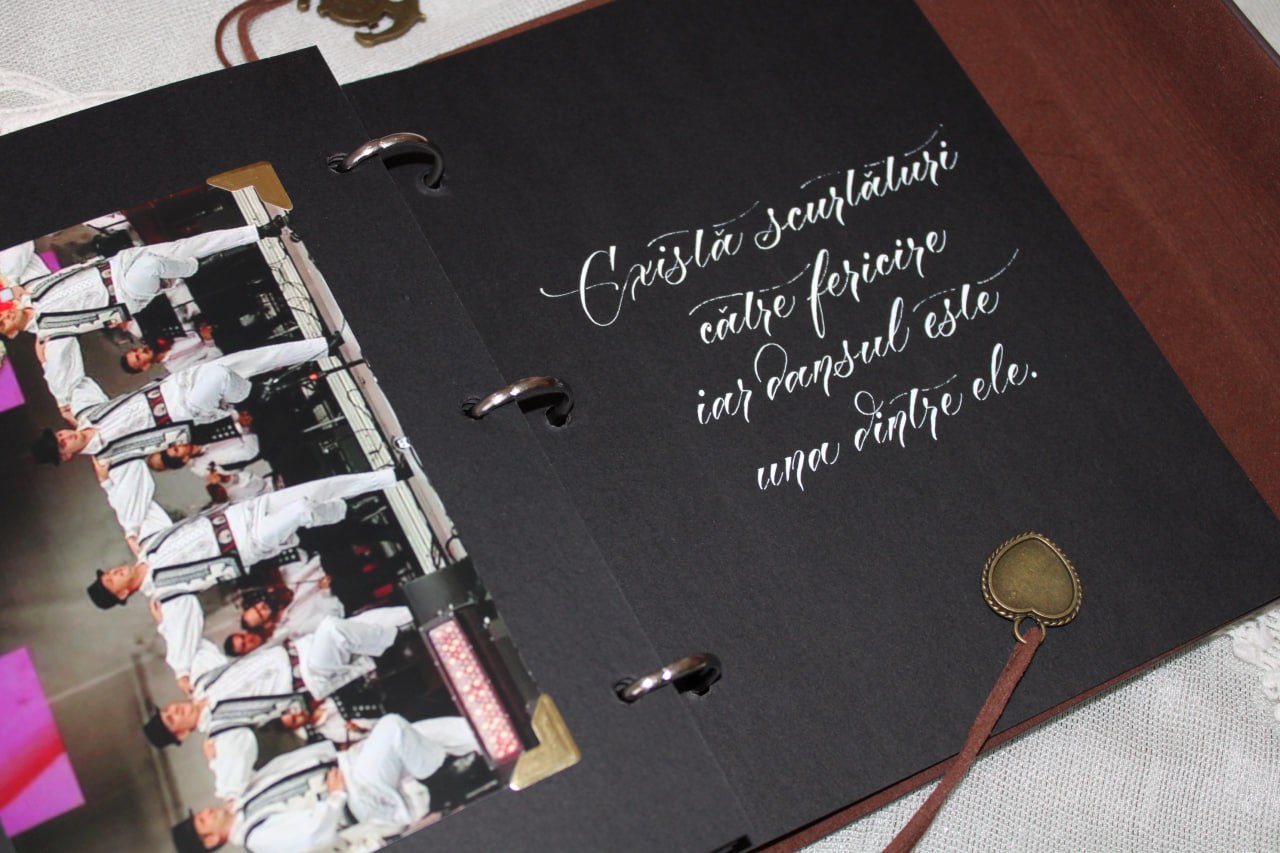 Există scurtături
către fericire
iar dansul este
una dintre ele.